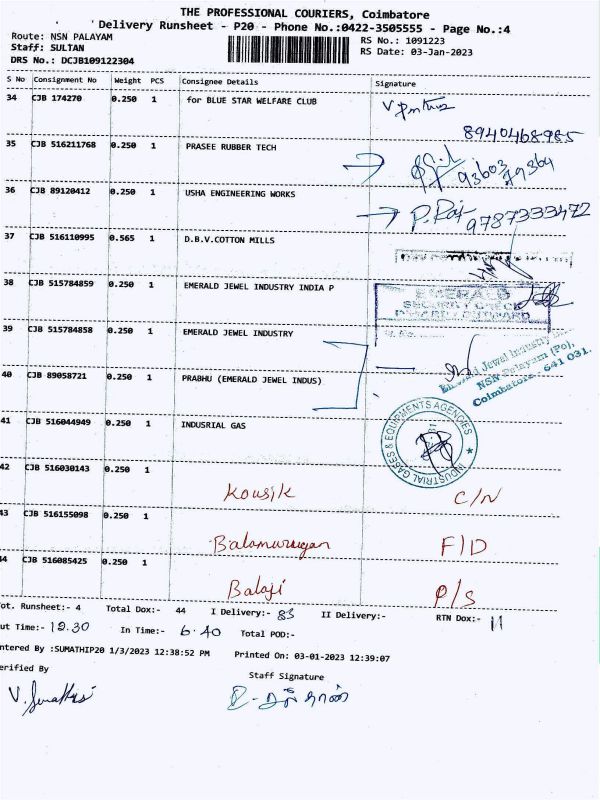 THE PROFESSIONAL COURIERS, Coimbatore
Delivery Runsheet - P20 - Phone No.:0422-3505555 - Page No.:4
Route: NSN PALAYAM
RS No.: 1091223
Staff: SULTAN
RS Date: 03-Jan-2023
DRS No.: DCJB109122304
S No Consignment No Weight PCS Consignee Details Signature
34 CJB 174270 0.250 1 for BLUE STAR WELFARE CLUB
8940468985
35 CJB 516211768 0.250 1 PRASEE RUBBER TECH
36 CJB 89120412 0.250 1 USHA ENGINEERING WORKS
P. Raj 9787333472
37 CJB 516110995 0.565 1 D.B.V.COTTON MILLS
38 CJB 515784859 0.250 1 EMERALD JEWEL INDUSTRY INDIA P
EMERALD
SECURITY CHECK
INWARD/OUTWARD
39 CJB 515784858 0.250 1 EMERALD JEWEL INDUSTRY
Emerald Jewel Industry
NSN Palayam (Po),
Coimbatore - 641 031.
40 CJB 89058721 0.250 1 PRABHU (EMERALD JEWEL INDUS)
41 CJB 516044949 0.250 1 INDUSRIAL GAS
INDUSTRIAL GASES & EQUIPMENTS AGENCIES
42 CJB 516030143 0.250 1
Kousik C/N
43 CJB 516155098 0.250 1
Balamurugan F/D
44 CJB 516085425 0.250 1
Balaji P/S
Tot. Runsheet:- 4 Total Dox:- 44 I Delivery:- 33 II Delivery:- RTN Dox:- 11
Out Time:- 12.30 In Time:- 6.40 Total POD:-
Entered By :SUMATHIP20 1/3/2023 12:38:52 PM Printed On: 03-01-2023 12:39:07
Verified By Staff Signature